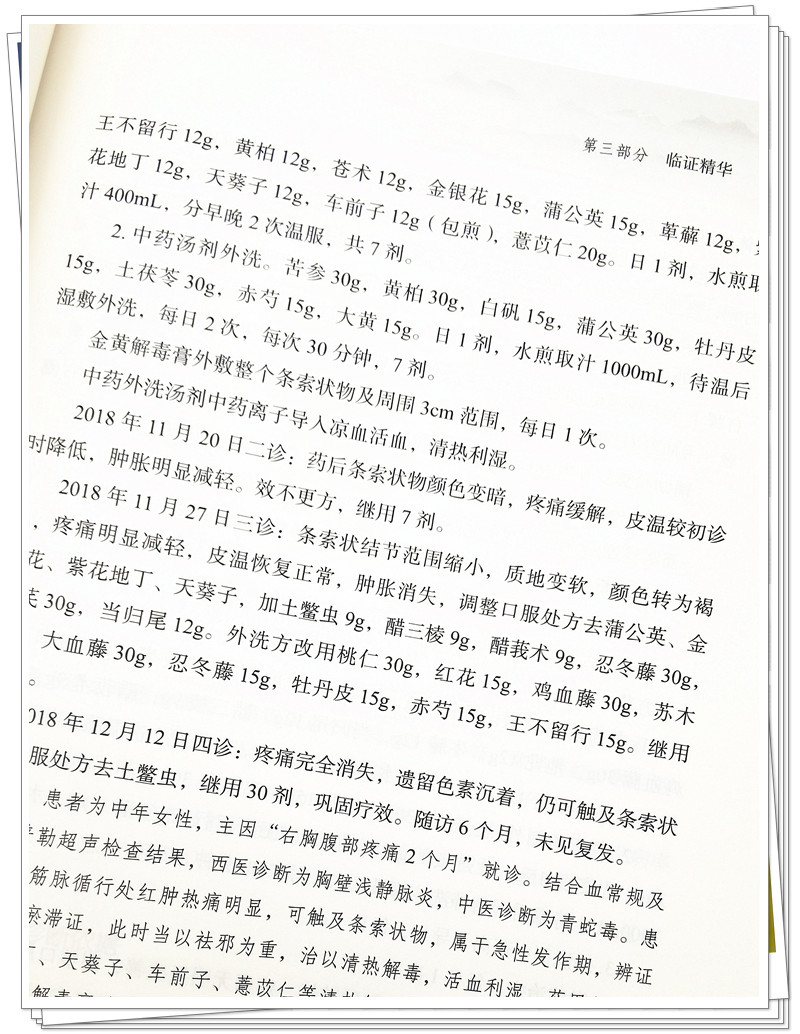 第三部分 临证精华
王不留行 12g，黄柏 12g，苍术 12g，金银花 15g，蒲公英 15g，萆薢 12g，
花地丁 12g，天葵子 12g，车前子 12g（包煎），薏苡仁 20g。日 1 剂，水煎取
汁 400mL，分早晚 2 次温服，共 7 剂。
2. 中药汤剂外洗。苦参 30g，黄柏 30g，白矾 15g，蒲公英 30g，牡丹皮
15g，土茯苓 30g，赤芍 15g，大黄 15g。日 1 剂，水煎取汁 1000mL，待温后
湿敷外洗，每日 2 次，每次 30 分钟，7 剂。
金黄解毒膏外敷整个条索状物及周围 3cm 范围，每日 1 次。
中药外洗汤剂中药离子导入凉血活血，清热利湿。
2018 年 11 月 20 日二诊：药后条索状物颜色变暗，疼痛缓解，皮温较初诊
时降低，肿胀明显减轻。效不更方，继用 7 剂。
2018 年 11 月 27 日三诊：条索状结节范围缩小，质地变软，颜色转为褐
，疼痛明显减轻，皮温恢复正常，肿胀消失，调整口服处方去蒲公英、金
花、紫花地丁、天葵子，加土鳖虫 9g，醋三棱 9g，醋莪术 9g，忍冬藤 30g，
30g，当归尾 12g。外洗方改用桃仁 30g，红花 15g，鸡血藤 30g，苏木
大血藤 30g，忍冬藤 15g，牡丹皮 15g，赤芍 15g，王不留行 15g。继用
。
018 年 12 月 12 日四诊：疼痛完全消失，遗留色素沉着，仍可触及条索状
服处方去土鳖虫，继用 30 剂，巩固疗效。随访 6 个月，未见复发。
患者为中年女性，主因“右胸腹部疼痛 2 个月”就诊。结合血常规及
勒超声检查结果，西医诊断为胸壁浅静脉炎，中医诊断为青蛇毒。患
筋脉循行处红肿热痛明显，可触及条索状物，属于急性发作期，辨证
瘀滞证，此时当以祛邪为重，治以清热解毒，活血利湿。
、天葵子、车前子、薏苡仁等清热